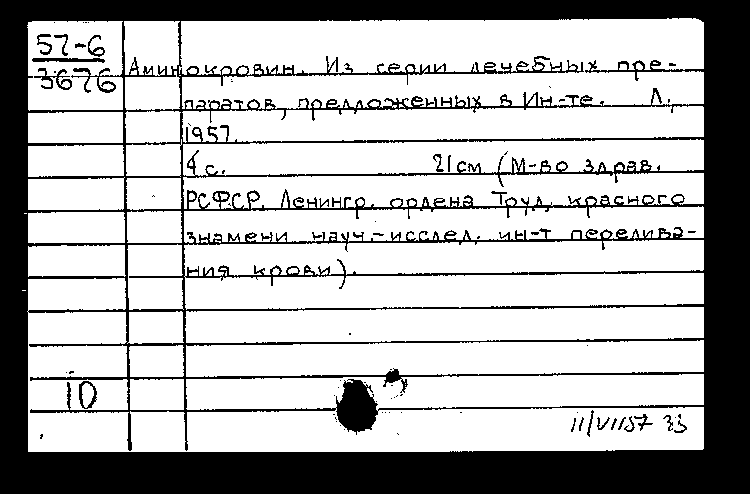 57-6
3676
Аминокровин. Из серии лечебных пре-
паратов, предложенных в Ин-те. Л.,
1957.
4 с. 21 см (М-во здрав.
РСФСР. Ленингр. ордена Труд. красного
знамени науч.-исслед. ин-т перелива-
ния крови).
10
11/VII57